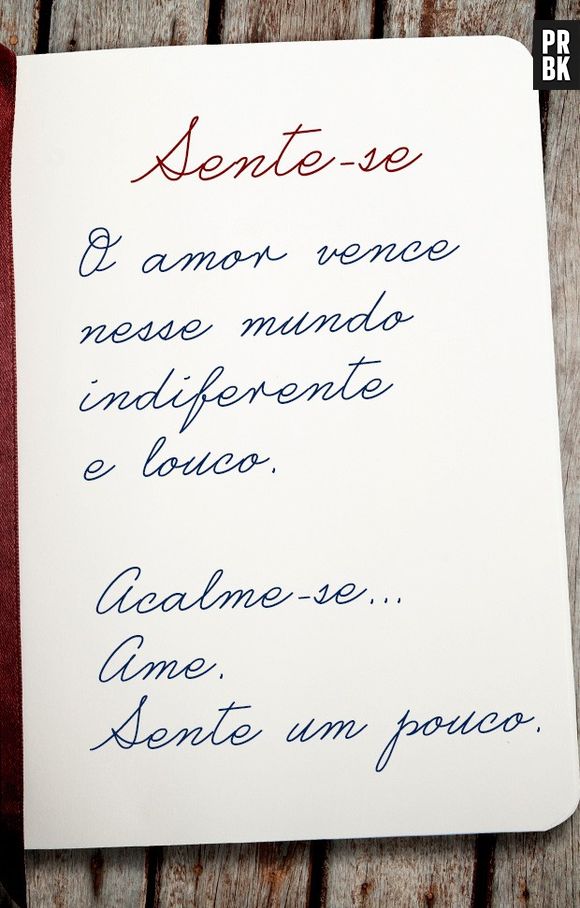 PR
BK
Sente-se
O amor vence
nesse mundo
indiferente
e louco.
Acalme-se...
Ame.
Sente um pouco.